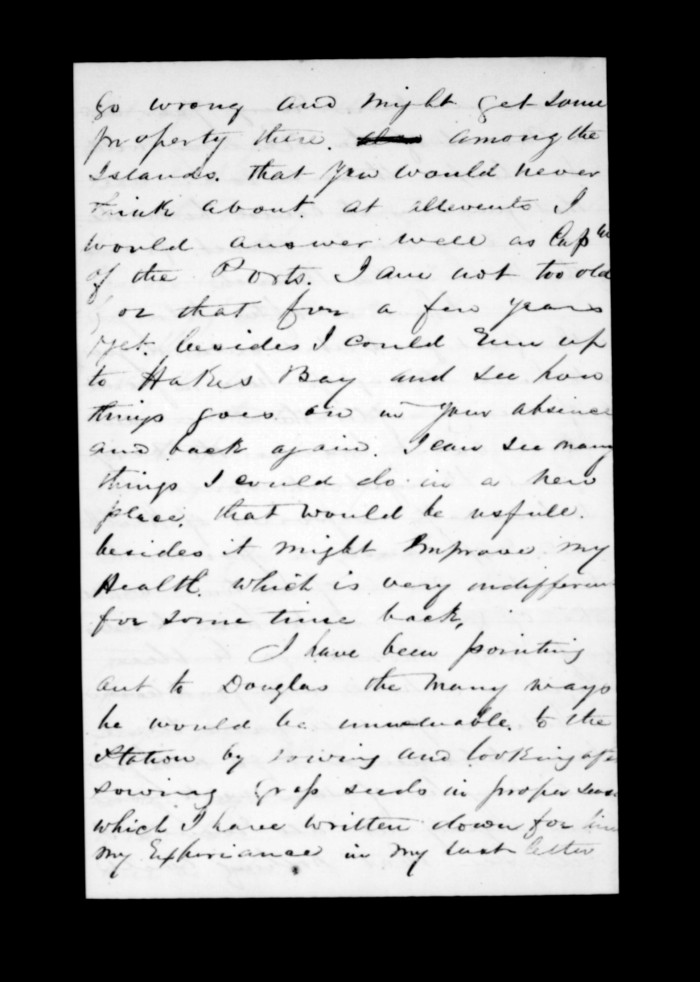 go wrong and might get some
property there. among the
Islands. that you would never
think about. at allevents I
would answer well as Captn
of the Ports. I am not too old
for that for a few years
yet, besides I could run up
to Hakes Bay and see how
things goes on in your absence
and back again. I can see many
things I could do in a new
place, that would be usfull.
besides it might Improve my
Health. which is very indifferent
for some time back,
I have been pointing
out to Douglas the many ways
he would be to the
Station by sowing and looking after
sowing Grass seeds in proper season
which I have written down for him
my Experiance in my last letter